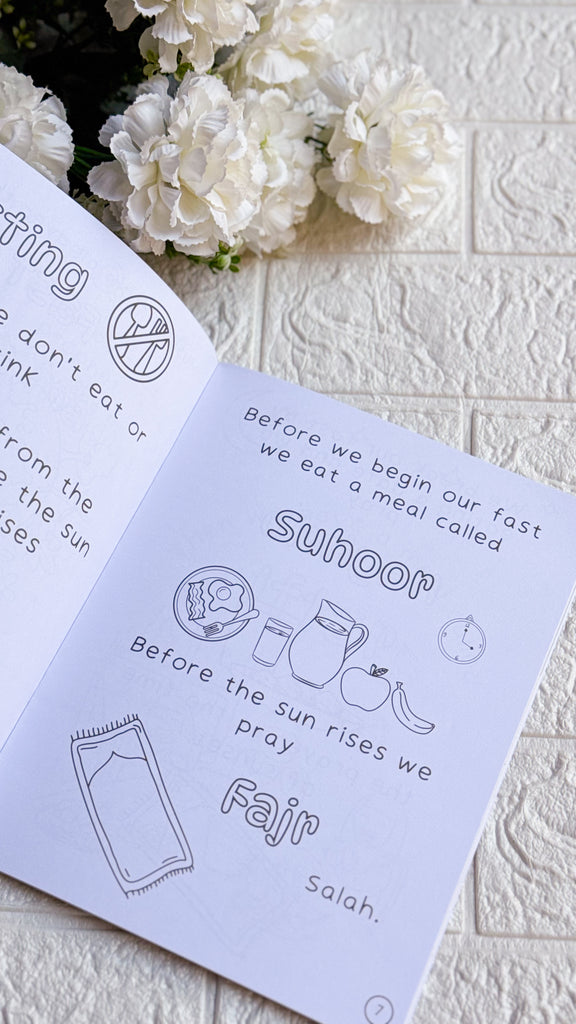 don't eat or
from the
the sun
Before we begin our fast
we eat a meal called
Suhoor
Before the sun rises we
pray
Fajr
Salah.
7